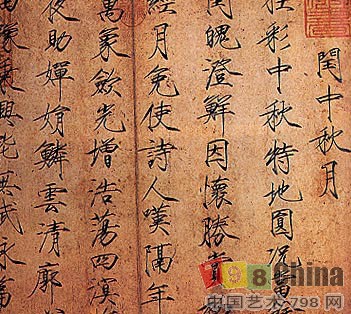 閏中秋月
桂彩中秋特地圓況當
閏魄澄鮮因懷勝賞
經月免使詩人嘆隔年
萬象斂光增浩蕩四溟
夜助嬋娟鱗雲清廓
豫乘興能無賦詠篇
798China
中国艺术·798网